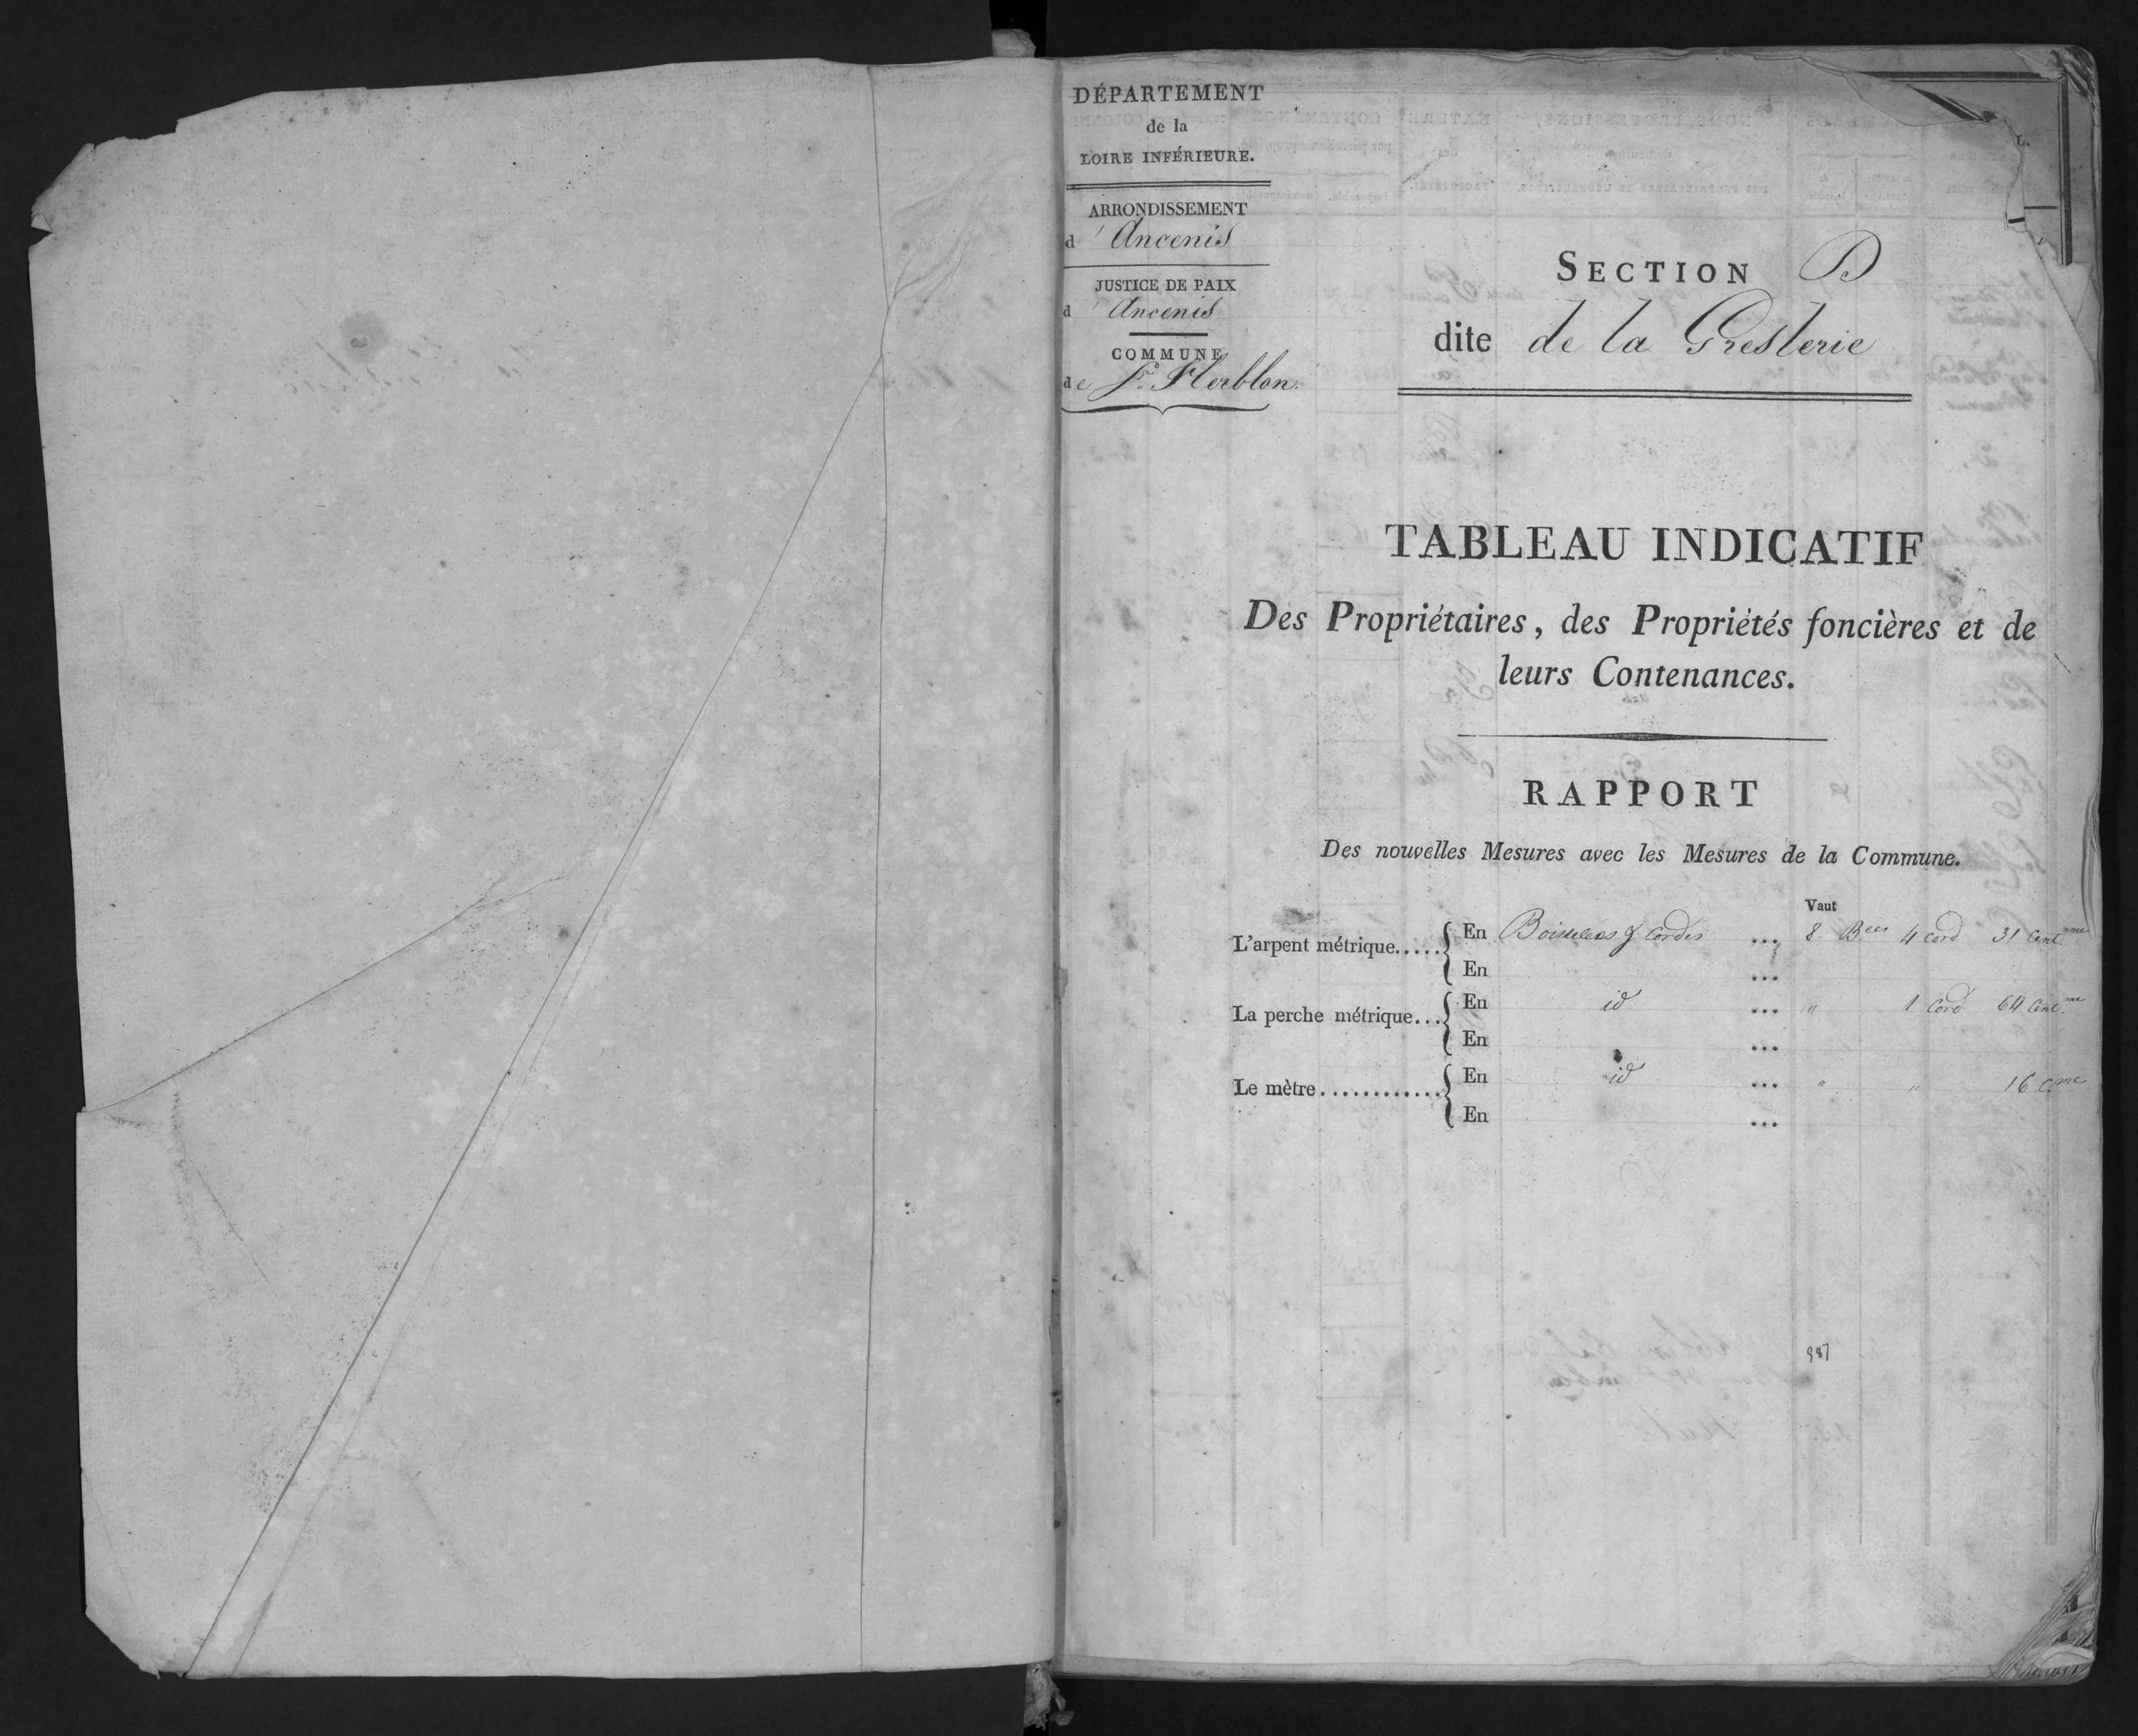 DÉPARTEMENT
de la
LOIRE INFÉRIEURE.
ARRONDISSEMENT
d'Ancenis
JUSTICE DE PAIX
d'Ancenis
COMMUNE
de St. Herblon.
SECTION B
dite de la Presterie
TABLEAU INDICATIF
Des Propriétaires, des Propriétés foncières et de
leurs Contenances.
RAPPORT
Des nouvelles Mesures avec les Mesures de la Commune.
Vaut
L'arpent métrique..... { En Boisselées & Cordes ... 8. B.ées 4 Cord. 31 Cent.me
En ...
La perche métrique... { En id ... " 1 Cord. 64 Cent.me
En ...
Le mètre............ { En id ... " " 16 C.me
En ...
987